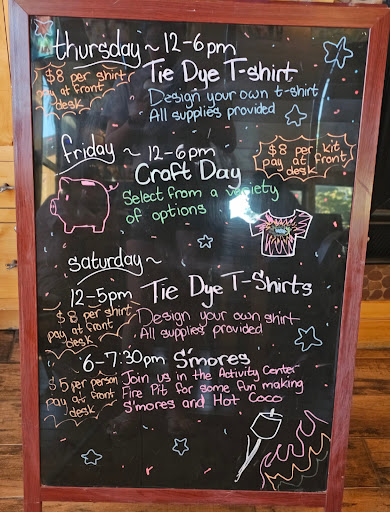 thursday ~ 12-6pm
$8 per shirt
pay at front
desk
Tie Dye T-shirt
Design your own t-shirt
All supplies provided
friday ~ 12-6pm
Craft Day
Select from a variety
of options
$8 per kit
pay at front
desk
saturday ~
12-5pm
Tie Dye T-Shirts
$8 per shirt
pay at front
desk
Design your own shirt
All supplies provided
6-7:30pm S'mores
$5 per person
pay at front
desk
Join us in the Activity Center
Fire Pit for some fun making
S'mores and Hot Coco